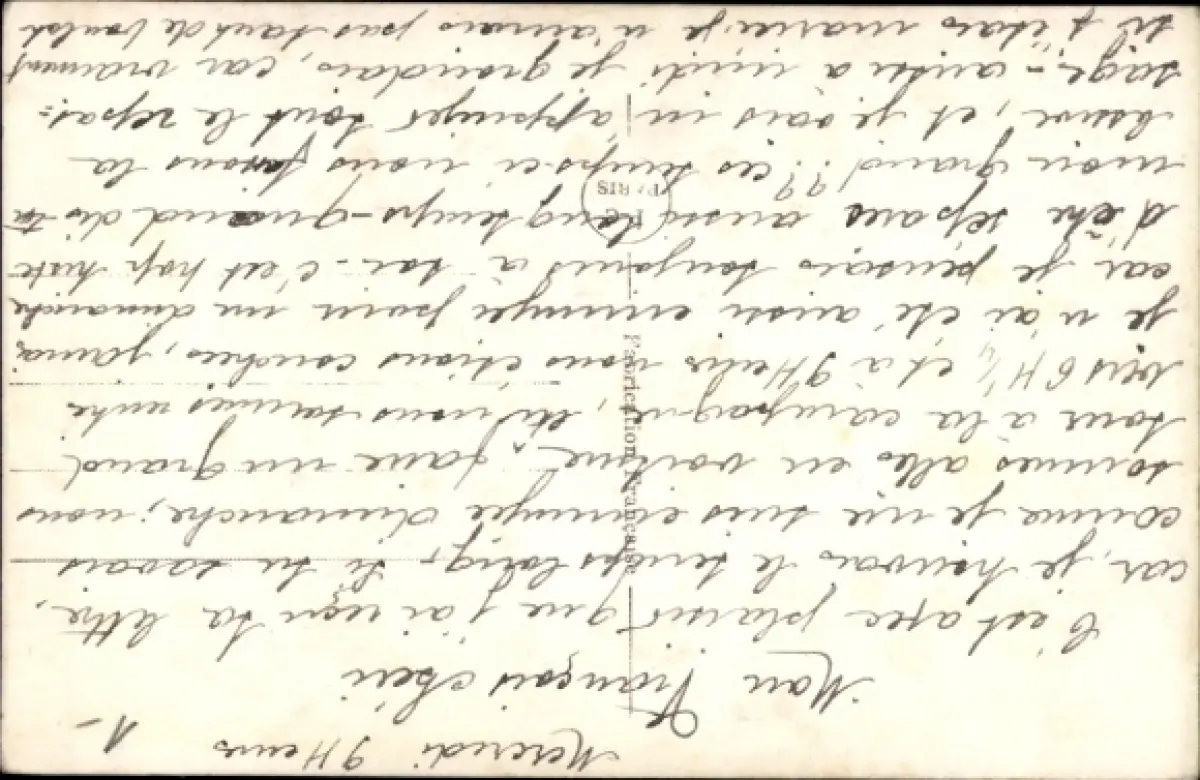 Mercredi 9 Heures
1 -
Mon François chéri
C'est avec plaisir que j'ai reçu ta lettre,
car je trouvais le temps long, si tu savais
comme je me suis ennuyée dimanche, nous
sommes allés en voiture faire un grand
tour à la campagne, nous sommes rentré
vers 6 H ½ et à 9 Heures nous étions couchés, jamais
je n'ai été aussi ennuyée pour un dimanche
car je pensais toujours à toi - c'est trop triste
d'être séparés aussi longtemps - quand dis-tu
mon grand?? ces temps-ci nous la
heure, et je vais m'appuyer tout le repas-
sage - aussi a midi je grondais, car vraiment
si j'étais mariée je n'aurais pas tant de boulot
Fabrication Française
PARIS